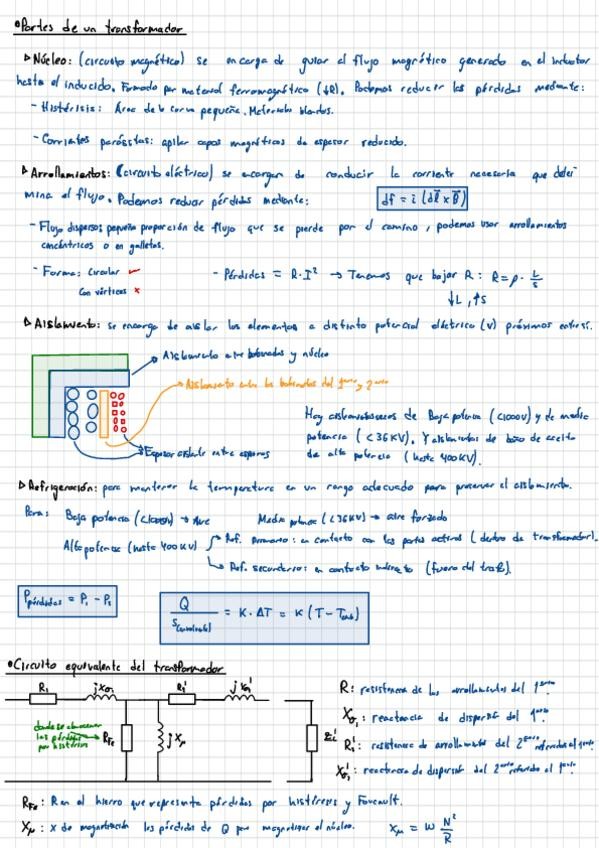 •Partes de un transformador
▷Núcleo: (circuito magnético) se encarga de guiar al flujo magnético generado en el inductor
hasta el inducido. Formado por material ferromagnético (↓R). Podemos reducir las pérdidas mediante:
- Histérisis: Área de la curva pequeña. Materiales blandos.
- Corrientes parásitas: apilar capas magnéticas de espesor reducido.
▷Arrollamientos: (circuito eléctrico) se encargan de conducir la corriente necesaria que deter
mina el flujo. Podemos reducir pérdidas mediante:
df = i (dl x B)
- Flujo disperso: pequeña proporción de flujo que se pierde por el camino, podemos usar arrollamientos
concéntricos o en galletas.
- Forma: Circular ✓
Con vértices ×
- Pérdidas = R·I² → Tenemos que bajar R: R = ρ · L/S
↓L, ↑S
▷Aislamiento: se encarga de aislar los elementos a distinto potencial eléctrico (V) próximos entre sí.
Aislamiento entre bobinados y núcleo
Aislamiento entre los bobinados del 1ario y 2ario
Espesor aislante entre espiras
Hay aislamientos de Baja potencia (<1000V) y de media
potencia (<36KV). Y aislantes de baño de aceite
de alta potencia (hasta 400KV).
▷Refrigeración: para mantener la temperatura en un rango adecuado para preservar el aislamiento.
Para: Baja potencia (<1000V) → Aire
Media potencia (<36KV) → aire forzado
Alta potencia (hasta 400KV)
Ref. Primario: en contacto con las partes activas (dentro de transformador).
Ref. secundario: en contacto indirecto (fuera del trafo).
Ppérdidas = P₁ - P₂
Q/S = K · ΔT = K (T - Tamb)
•Circuito equivalente del transformador
R₁ jXσ₁ R₂' jXσ'
donde se
las pérdidas
por histérisis
RFe jXμ
R: resistencia de los arrollamientos del 1ario.
Xσ₁: reactancia de dispersión del 1ario.
R₁': resistencia de arrollamiento del 2ario referida al 1ario.
Xσ₁': reactancia de dispersión del 2ario referido al 1ario.
RFe: R en el hierro que representa pérdidas por histéresis y Foucault.
Xμ: X de magnetización las pérdidas de Q por magnetizar el núcleo. Xμ = ω N²/R